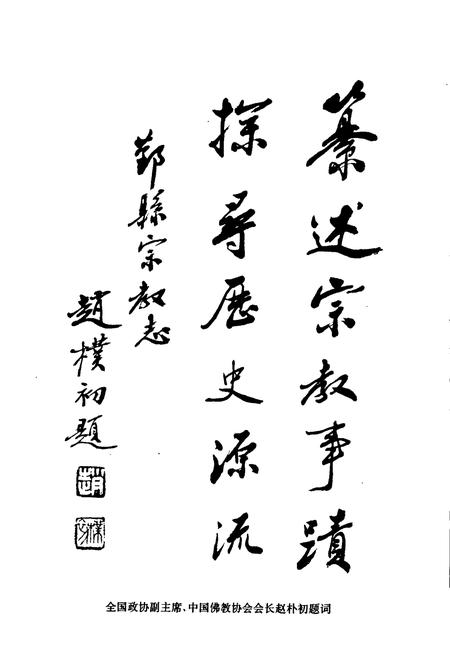 纂述宗教事蹟
探尋歷史源流
鄞縣宗教志
趙樸初題
趙
樸初
全国政协副主席、中国佛教协会会长赵朴初题词